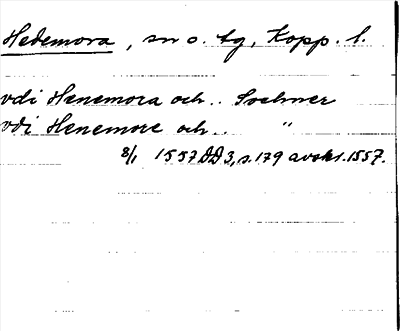 Hedemora, sn o. tg, Kopp. l.
vdi Henemora och.. Sochner
vdi Henemore och.. "
8/1 1557 DD3, s. 179 avskr. 1557.